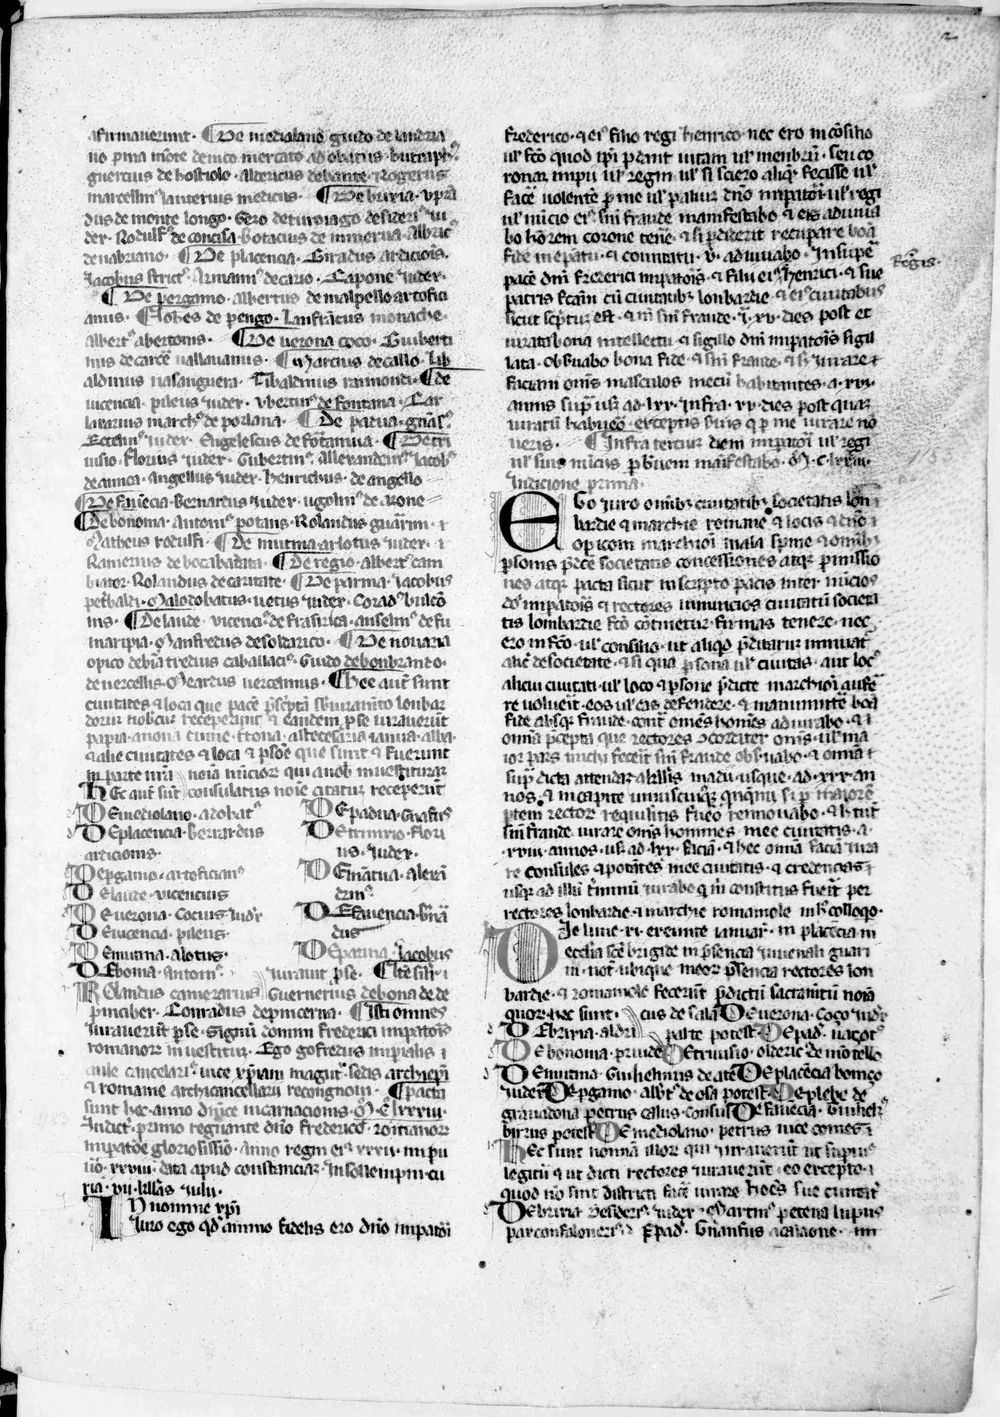 2
afirmauerunt. De mediolano guido de landria
no pina môte de uico mercato adobatus butraph9
guercius de hostiolo. aldericus de bante. Rogerius
marcellin9 lanterius medicus. De brixia. vpra
dus de monte longo. Gero de turoiago desideri9 iu
der. Rodulf9 de concisa. botacius de minerua. albric9
de nabriano. De placencia. Giradus ardicioĩs.
Jacobus strict9. Armann9 de cario. Capone iuder.
De pergamo. albertus de malpello artofici
anus. Iohẽs de pengo. lanfrãcus monache.
albert9 abertoms. De uerona coco. Guiberti
nus de carcẽ uallauanus. Marcius de callo. lib
aldinus nasanguera. Tibaldinus raimondi. De
uicencia. pileus iuder. vbertin9 de fontana. Car
latarius march9 de pozlana. De padua. gnãf9
Ecteni9 iuder. Engelescus de fõtaniua. De tri
uisio. florius iuder. Gubertin9. Allexandrin9 iacob9
de aunca. angellus iuder. henrichus de angello
De fauẽcia. bernardus iuder. ugolin9 de azone
De bonoma. antoni9 potans. Rolandus guarini. ⁊
Matheus rodulfi. De mutina. arlotus iuder. ⁊
Ranierius de bocabadata. De regio. albert9 cam
biator. Rolandus de caritate. De parma. iacobus
petbaldi. Malodobatus. uetus iuder. Corad9 bulcõ
nis. De laude. vicenci9 de frasirica. anselm9 de fu
maripia. Manfredus de soltarico. De nouaria
opico de biãtredius caballaci9. Guido de bonbrando.
de uercellis. Meardus uercennus. Hee aut̃ sunt
ciuitates & loca que pacẽ p̃scptã sb iuramto lonbar
dorum nobiscum receperunt & eandem p se iurauerũt
papia. anona cume. t̃tona. ast cesaria ianua. alba.
& alie ciuitates & loca & psõe que sunt & fuerunt
in parte nr̃a noĩa nũcior qui a nob inuestiturar
Hec aut sũt consulatus noĩe ciuitatur receperũt
De mediolano. adobat9
De placencia. bernardus
ardicionis.
De pgamo. artofician9
De laude. vicencius
De uerona. Cocius iud̃r
De uicencia. pileus.
De mutina. alotus.
De bõoma. antoni9.
De padua. Gnafus
De triuixio. flori
us. iuder.
De mãtua. alexã
drin9.
De fauencia. bñar
dus
De parma. Iacobus
iurauit p se. Itẽ sal ⁊
Rolandus camerarius Guernerius de bona de de
pinciber. Conradus de pincerna. Isti omnes
iurauerũt p se. Signũ domini federici impatoris
romanor inuestitui. Ego gofredus impialis ⁊
aule cancelari9. uice xp̃iani magut9. sedis archiep̃i
& romanie archicancellarii recongnoui. pacta
sunt hec. anno dñice incarnacionis. M. C. lxxxiii.
indict9 primo regnante dño frederico. romanor
impatõe gloriosissio. Anno regni ei9 xxxii. impii
uõ. xxviii. data apud constanciar. in sollempni cu
ria. vii. kl̃las iulii.
In nomine xp̃i
Juro ego qd amimo fidens ero dño impatori
frederico. & ei9 filio regi henrico nec ero in cõsilio
ul̃ fc̃o quod ip̃i pdant uitam ul̃ menbrũ. seu co
ronar impii ul̃ regni. ul̃ si sciero aliqr fecisse ul̃
facẽ uolentẽ p me ul̃ patiur dño impatori ul̃ regi
ul̃ nũcio ei9 sini fraude manifestabo & eis adiuua
bo hõrem corone tenẽ. & si pdiderit recupare boã
fide in epatu & comitatu. v. adiuuabo. Insupẽ
pacẽ dm̃ frederici impatoris & filii ei9 henrici & sue
patris fcãm cũ ciuitatibz lonbardie & ei9 ciuitatibus
sicut scptur est. & ni sini fraude. i. xv. dies post et
iuratabona intellectu & sigillo dm̃ impatoris sigil
lata. obseruabo bona fide. & sini fraute. & si iurare &
faciam omĩs masculos mecũ habitantes. a. xvi.
annis sup usqz ad. lxx. infra. xv. dies post quar
iuratũ habueõ. exceptis suis q p me iurare no
ueris. Infra tercium diem impatori ul̃ regi
ul̃ suis nũciis p buem manifestabo. M. C. lxxxiii.
Indicione prima.
Regis.
Ego iuro omibz ciuitatibz societatis lon
bardie & marchie romane & locis & dño ⁊
opicom marchioni mala spine & omibz
psonis pdcẽ societatis concessiones atqz pmissio
nes atqz pacta sicut in scripto pacis inter nũcios
dõ impatoris & rectores in nuncios ciuitatũ societa
tis lonbardie fc̃o cõtinetur firmas tenere. nec
ero in fc̃o. ul̃ consilio. ut aliqd pdatur minuat
alic̃ de societate. & si qua psona ul̃ ciuitas. aut loc9
alicui ciuitati. ul̃ loco. & psone pdicte marchioni aufe
re uoluerit. eos ul̃ eas defendere. & manuntne boã
fide absqz fraude. cont̃ omẽs homẽs adiuuabo. & ⁊
omnia pcepta que rectores concorditer omĩs. ul̃ ma
ior pars michi fecerit sini fraude obseruabo. & omnia ⁊
sup dicta attendar akl̃lis madii. usque ad. xxx. an
nos. & in capite uniuscuiqz quinqnii si p maiorẽ
ptem rector requisitus fuero rennouabo. & si tur
sini fraude. iurare omĩs hommes mee ciuitatis. a.
xviii. annos. usqz ad. lxx. faciã. & hec omnia faciã iura
re consules & potates mee ciuitatis. & credencias ⁊
usqz ad illũ t̃minũ iurabo qui constitus fuerit per
rectores lonbardie. & marchie romamole in hc̃ colloqo.
Die lune. xi. exeunte ianuar. in placẽcia in
ecclia scẽ brigide in psencia iuuenali guari
ni. not9. ubique meor psencia rectores lon
bardie. & romamole fecerũt pdictũ sacramtũ noĩa
quor hec sunt. cus de sala. De uerona. Coço iud̃r
De brixia. aldri parte potest9. De pad. uaçot9
De bonoma. priude. De triuisio. olderic9 de mõtello
De mutina. Guilielmus de atẽ. De placẽcia bomço
iuder. De pgamo. albt9 de osa potest9. De plebe de
grauadona petrus calius. consul. De fauẽcia. Guilielm9
birzus potest9. De mediolano. petrus uice comes ⁊
Hec sunt nomĩa illor qui iurauerũt ut supius
legitũ & ut dicti rectores iurauerũt. eo excepto. ⁊
quod nõ sint districti facẽ iurare hoĩes sue ciuitat9
De brixia Desideri9 iuder. Martin9 petena lupus
par confaloneri9. De pad. Gnanfus acalaone. in